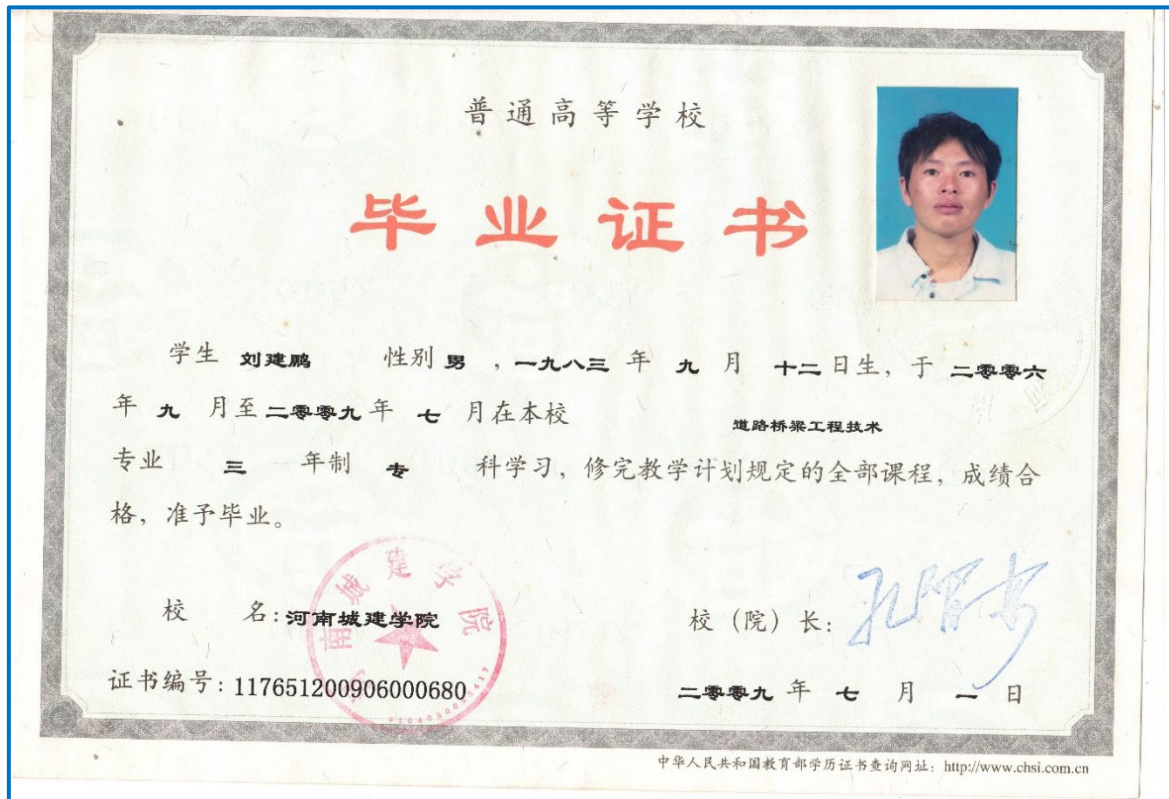 普通高等学校
毕业证书
学生 刘建鹏 性别 男 ，一九八三 年 九 月 十二 日生，于 二零零六
年 九 月至 二零零九 年 七 月在本校 道路桥梁工程技术
专业 三 年制 专 科学习，修完教学计划规定的全部课程，成绩合
格，准予毕业。
河南城建学院
校 名：河南城建学院 校（院）长：
证书编号：117651200906000680 二零零九 年 七 月 一 日
中华人民共和国教育部学历证书查询网址：http://www.chsi.com.cn